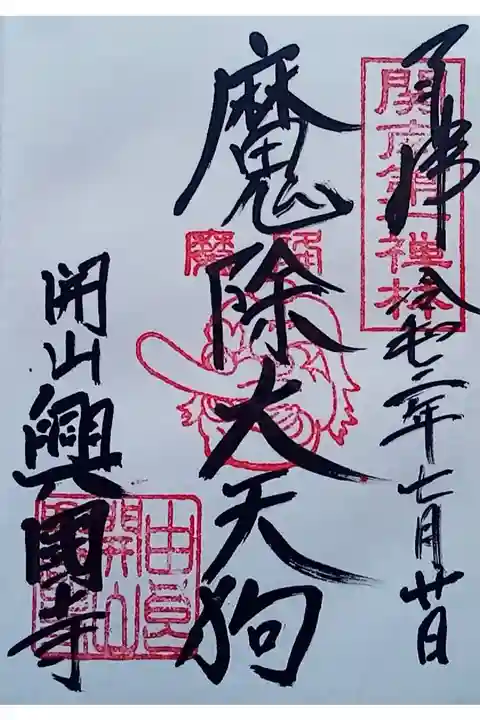 関南第一禅林
奉拝 令和二年七月廿日
魔除大天狗
開山興國寺
由良
開山